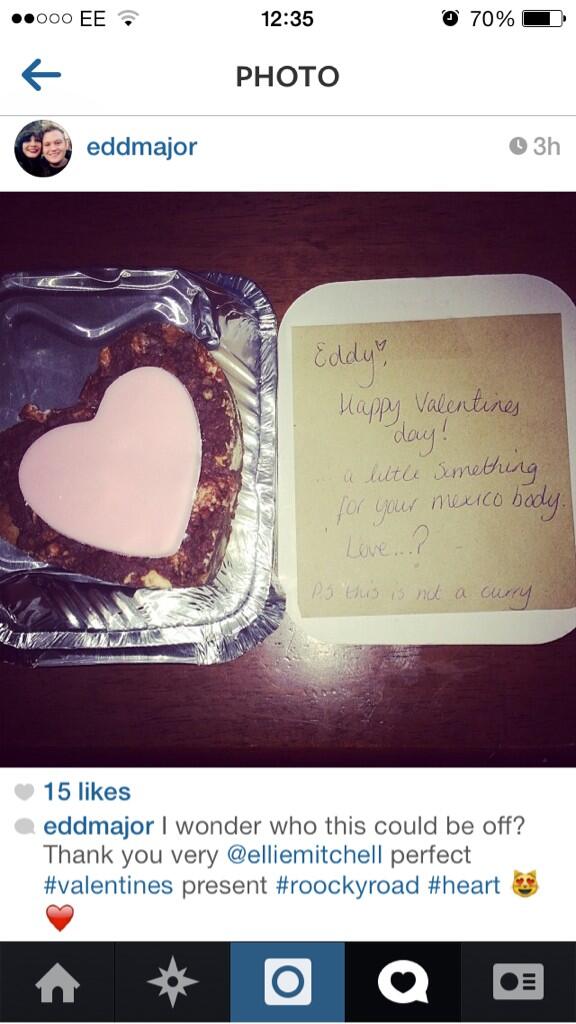 EE 12:35 70%
PHOTO
eddmajor 3h
Eddy,
Happy Valentines
day!
a little something
for your mexico body.
Love...?
P.S this is not a curry
15 likes
eddmajor I wonder who this could be off?
Thank you very @elliemitchell perfect
#valentines present #roockyroad #heart 😻
❤️